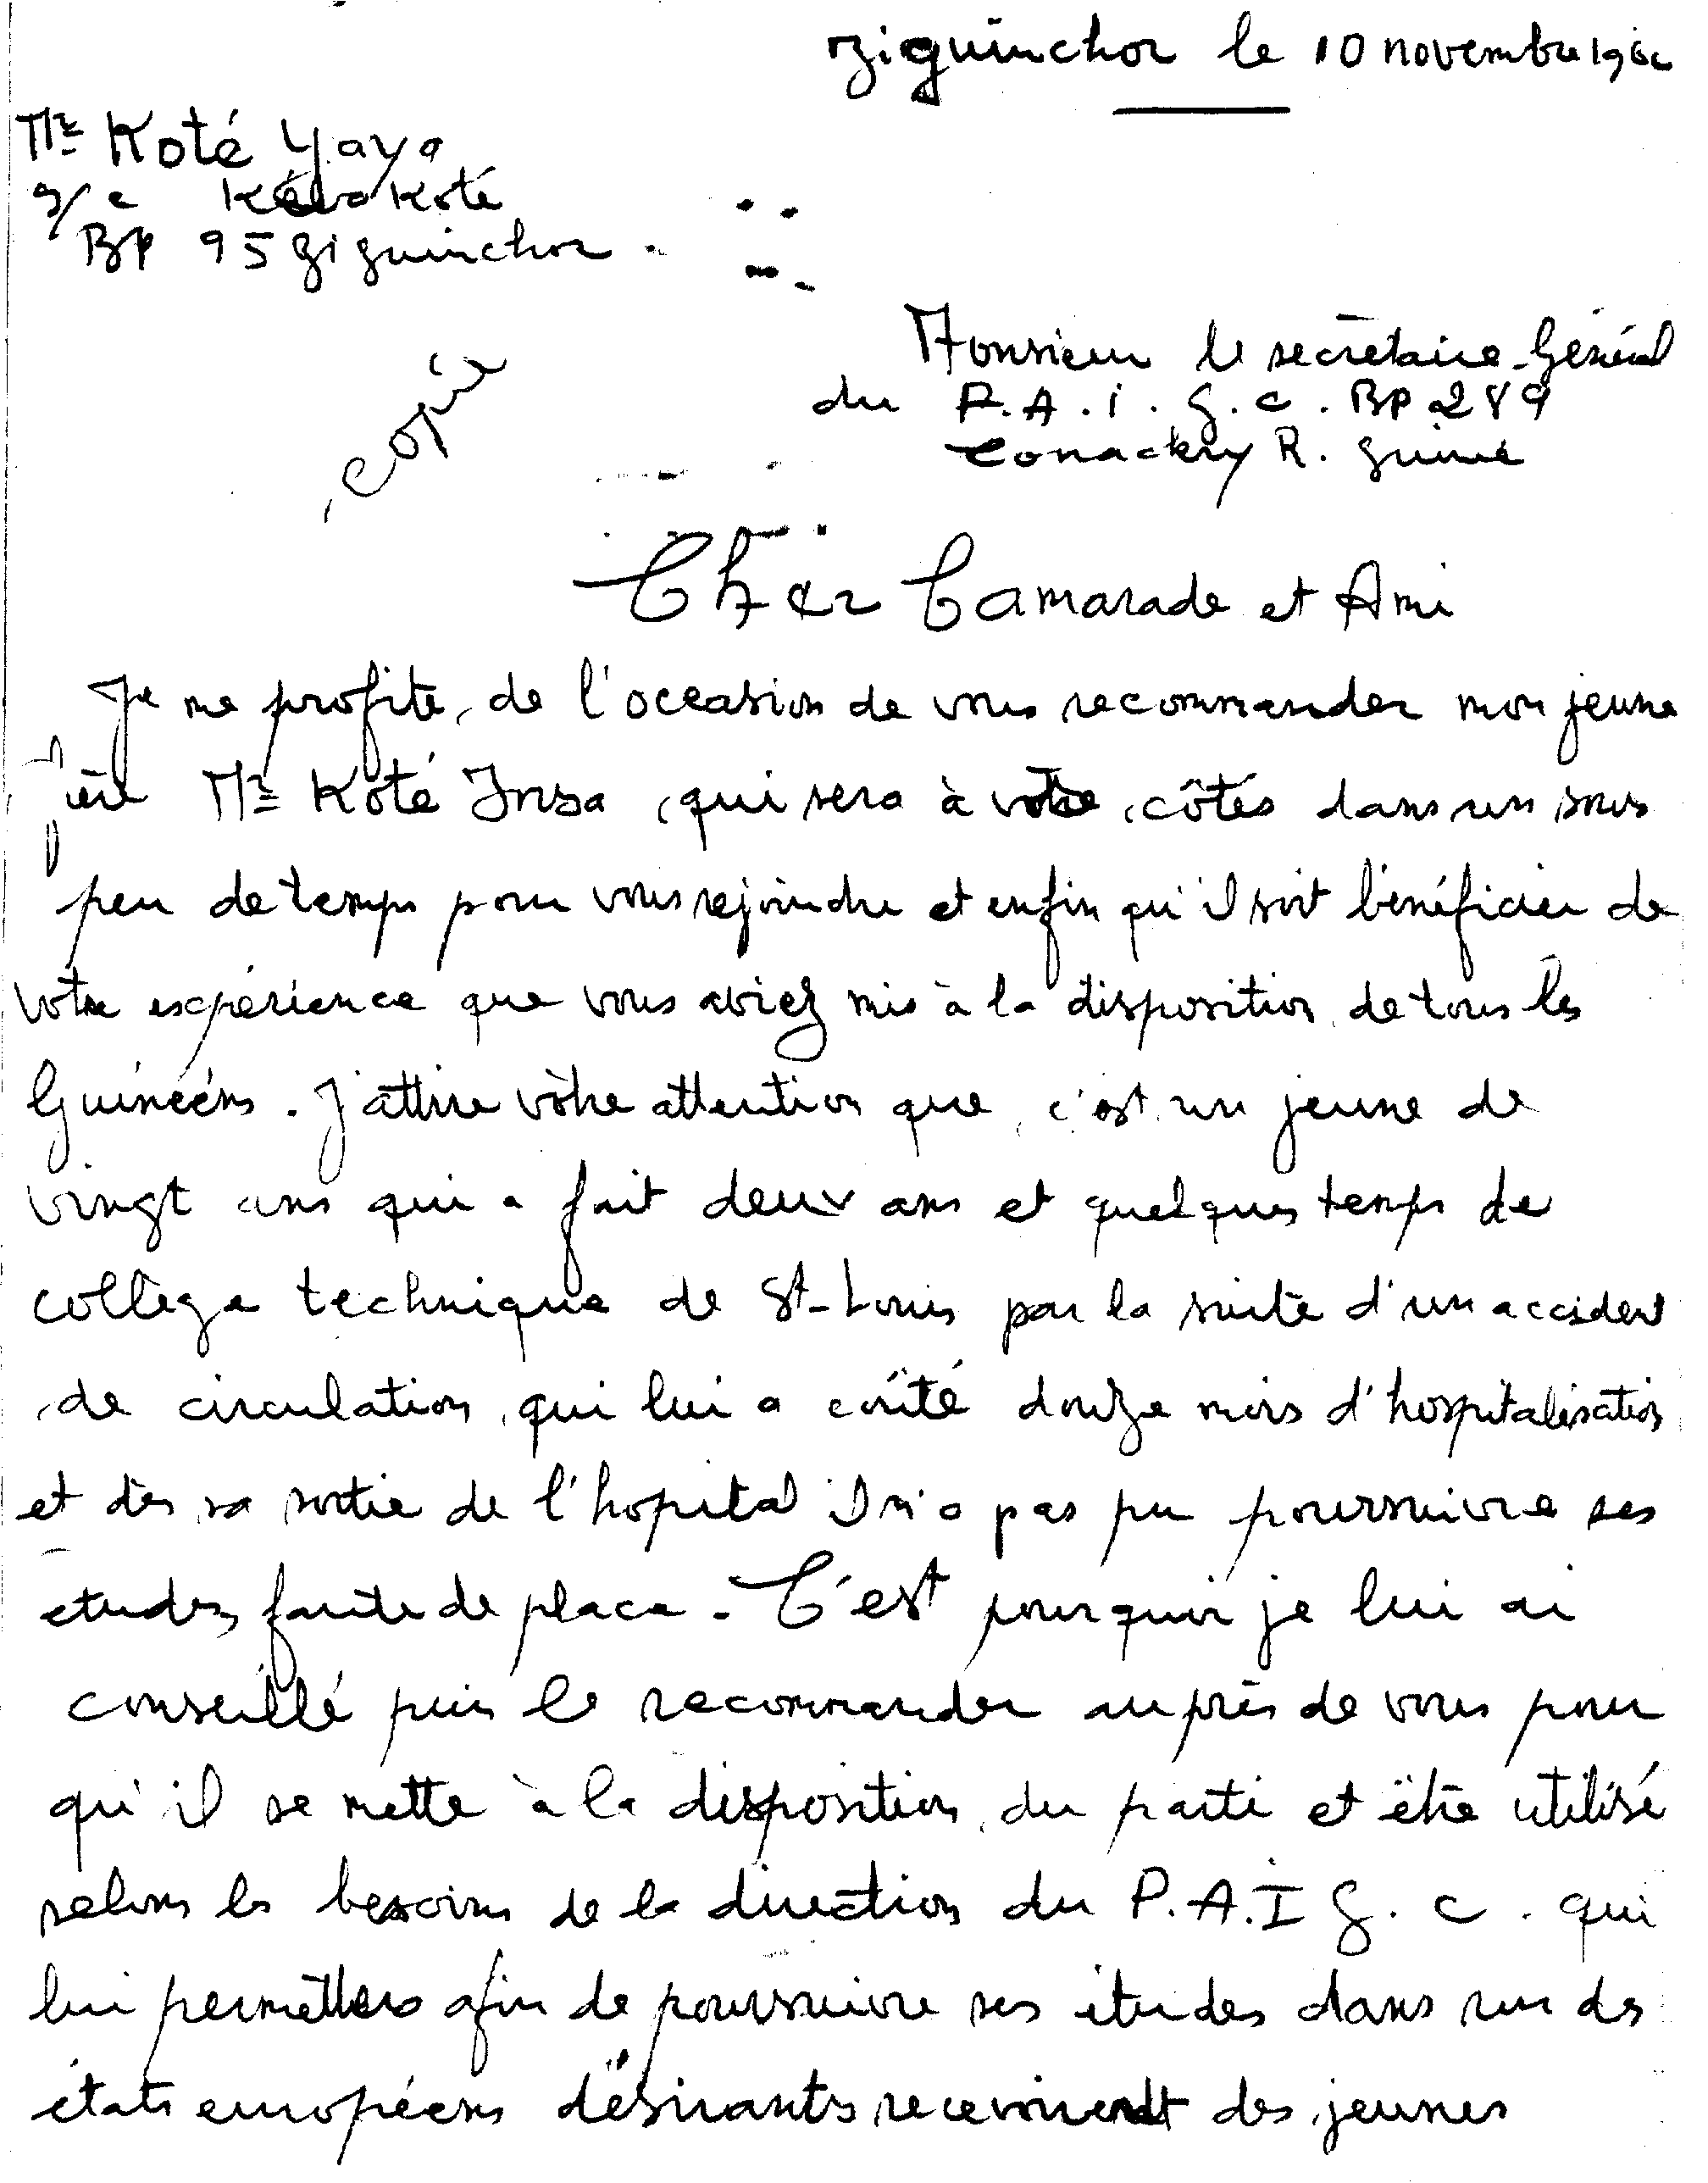 Ziguinchor le 10 novembre 196
Mr Koté Yaya
s/c Koté
BP 95 Ziguinchor
Monsieur le secrétaire-Général
du P.A.I.G.C. BP 289
Conackry R. Guiné
copie
Cher Camarade et Ami
Je me profite, de l'occasion de vous recommander mon jeune
frère Mr Koté Insa, qui sera à votre côtés dans un sous
peu de temps pour vous rejoindre et enfin qu'il soit bénéficier de
votre expérience que vous aviez mis à la disposition de tous les
Guinéens. J'attire vôtre attention que c'est un jeune de
vingt ans qui a fait deux ans et quelques temps de
collège technique de St-Louis par la suite d'un accident
de circulation, qui lui a coûté douze mois d'hospitalisation
et dès sa sortie de l'hopital il n'a pas pu poursuivre ses
etudes faute de place. C'est pourquoi je lui ai
conseillé puis le recommander auprès de vous pour
qu'il se mette à la disposition du parti et être utilisé
selons les besoins de la direction du P.A.I G.C. qui
lui permettera afin de poursuivre ses études dans un des
états européens désirants des jeunes